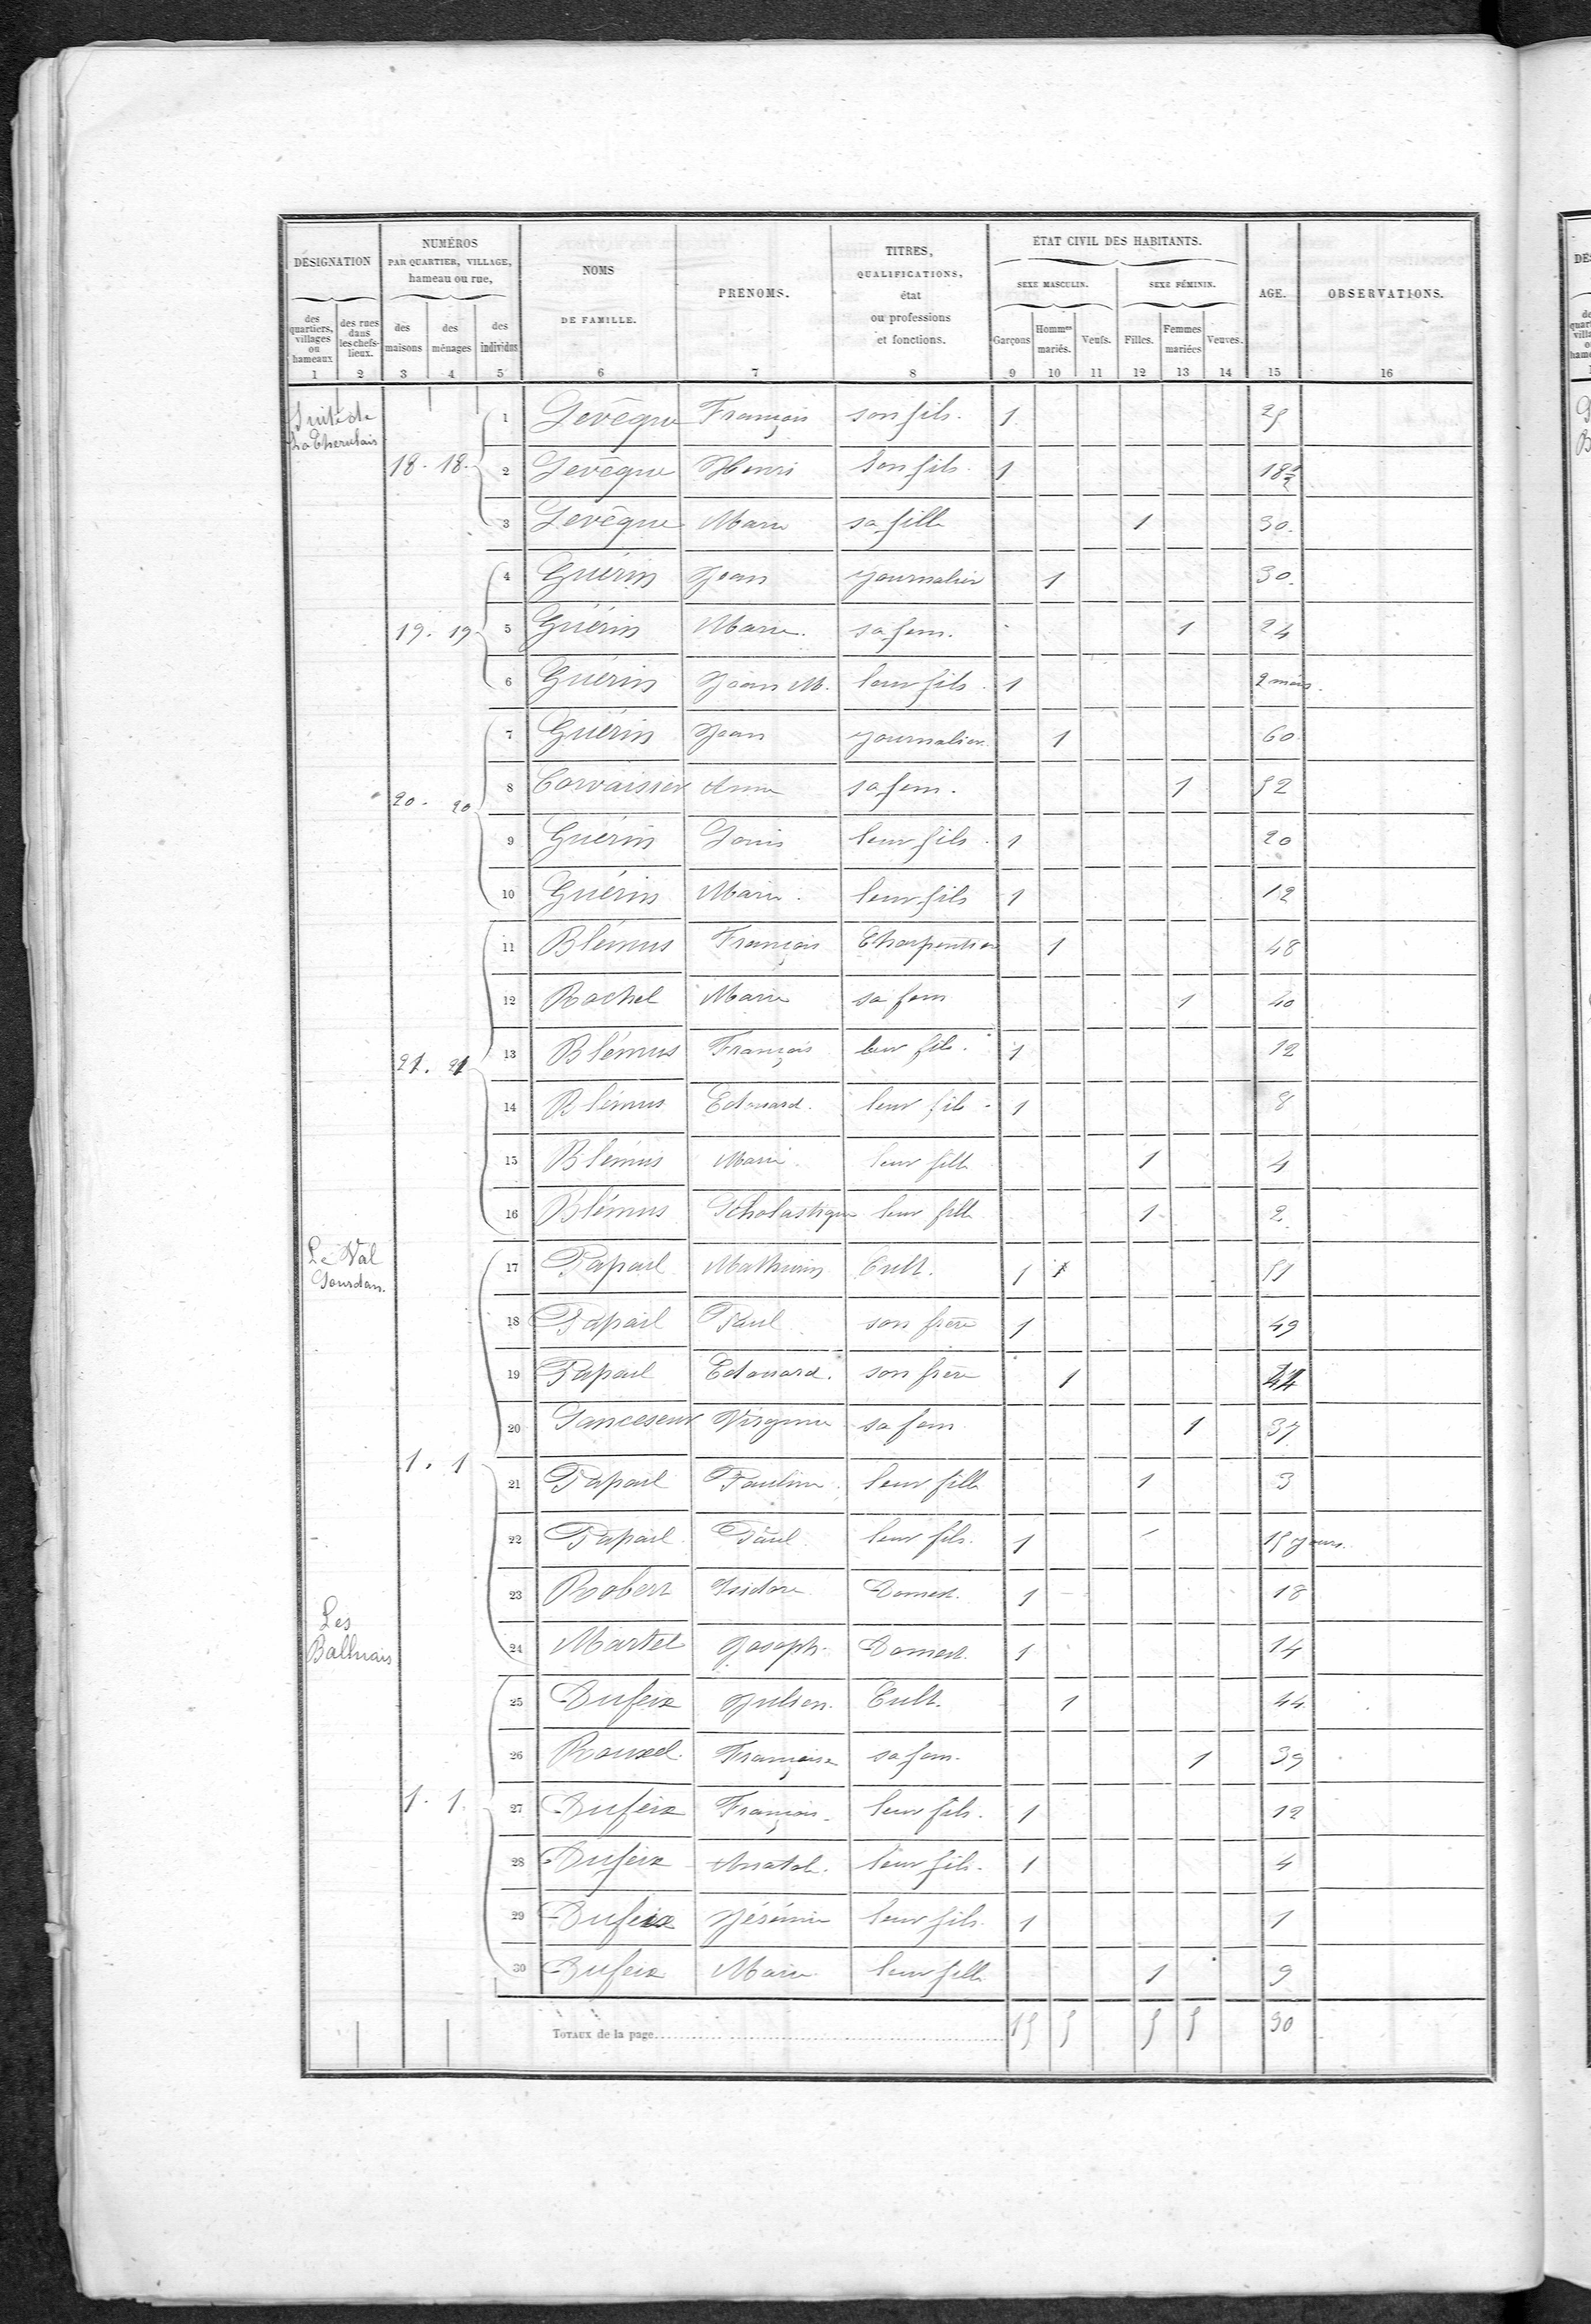 DÉSIGNATION
des quartiers, villages ou hameaux
des rues dans les chefs-lieux.
NUMÉROS
PAR QUARTIER, VILLAGE,
hameau ou rue,
des maisons
des ménages
des individus
NOMS
DE FAMILLE.
PRÉNOMS.
TITRES,
QUALIFICATIONS,
état
ou professions
et fonctions.
ÉTAT CIVIL DES HABITANTS.
SEXE MASCULIN.
SEXE FÉMININ.
Garçons
Hommes mariés.
Veufs.
Filles.
Femmes mariées
Veuves.
AGE.
OBSERVATIONS.
1 2 3 4 5 6 7 8 9 10 11 12 13 14 15 16
Suite de
18. 18.
1 Levêque François son fils. 1 25
2 Levêque Henri son fils. 1 18 1/2
3 Levêque Marie sa fille 1 30.
19. 19
4 Guérin Jean journalier 1 30.
5 Guérin Marie. sa fem. 1 24
6 Guérin Jean M. leur fils. 1 2 mois.
20. 20
7 Guérin Jean journalier. 1 60.
8 Corvaisier Anne sa fem. 1 52
9 Guérin Louis leur fils. 1 20
10 Guérin Marie. leur fils 1 12
21. 21
11 Blémus François Charpentier 1 48
12 Rachel Marie sa fem 1 40
13 Blémus François leur fils. 1 12
14 Blémus Edouard. leur fils. 1 8
15 Blémus Marie. leur fille 1 4
16 Blémus Scholastique leur fille 1 2
Le Val
Jourdan.
1. 1
17 Papail Mathurin Cult. 1 1 51
18 Papail Paul son frère 1 49
19 Papail Edouard. son frère 1 44
20 Lanceseur Virginie sa fem 1 37
21 Papail Pauline leur fille 1 3
22 Papail Paul leur fils. 1 15 jours.
23 Robert Isidore Domest. 1 18
24 Martel Joseph Domest. 1 14
Les
1. 1.
25 Dufeix Julien. Cult. 1 44
26 Rouxel Françoise sa fem. 1 39
27 Dufeix François. leur fils. 1 12
28 Dufeix Anatole. leur fils. 1 4
29 Dufeix Jérémie leur fils. 1 1
30 Dufeix Marie leur fille 1 9
TOTAUX de la page 15 5 5 5 30